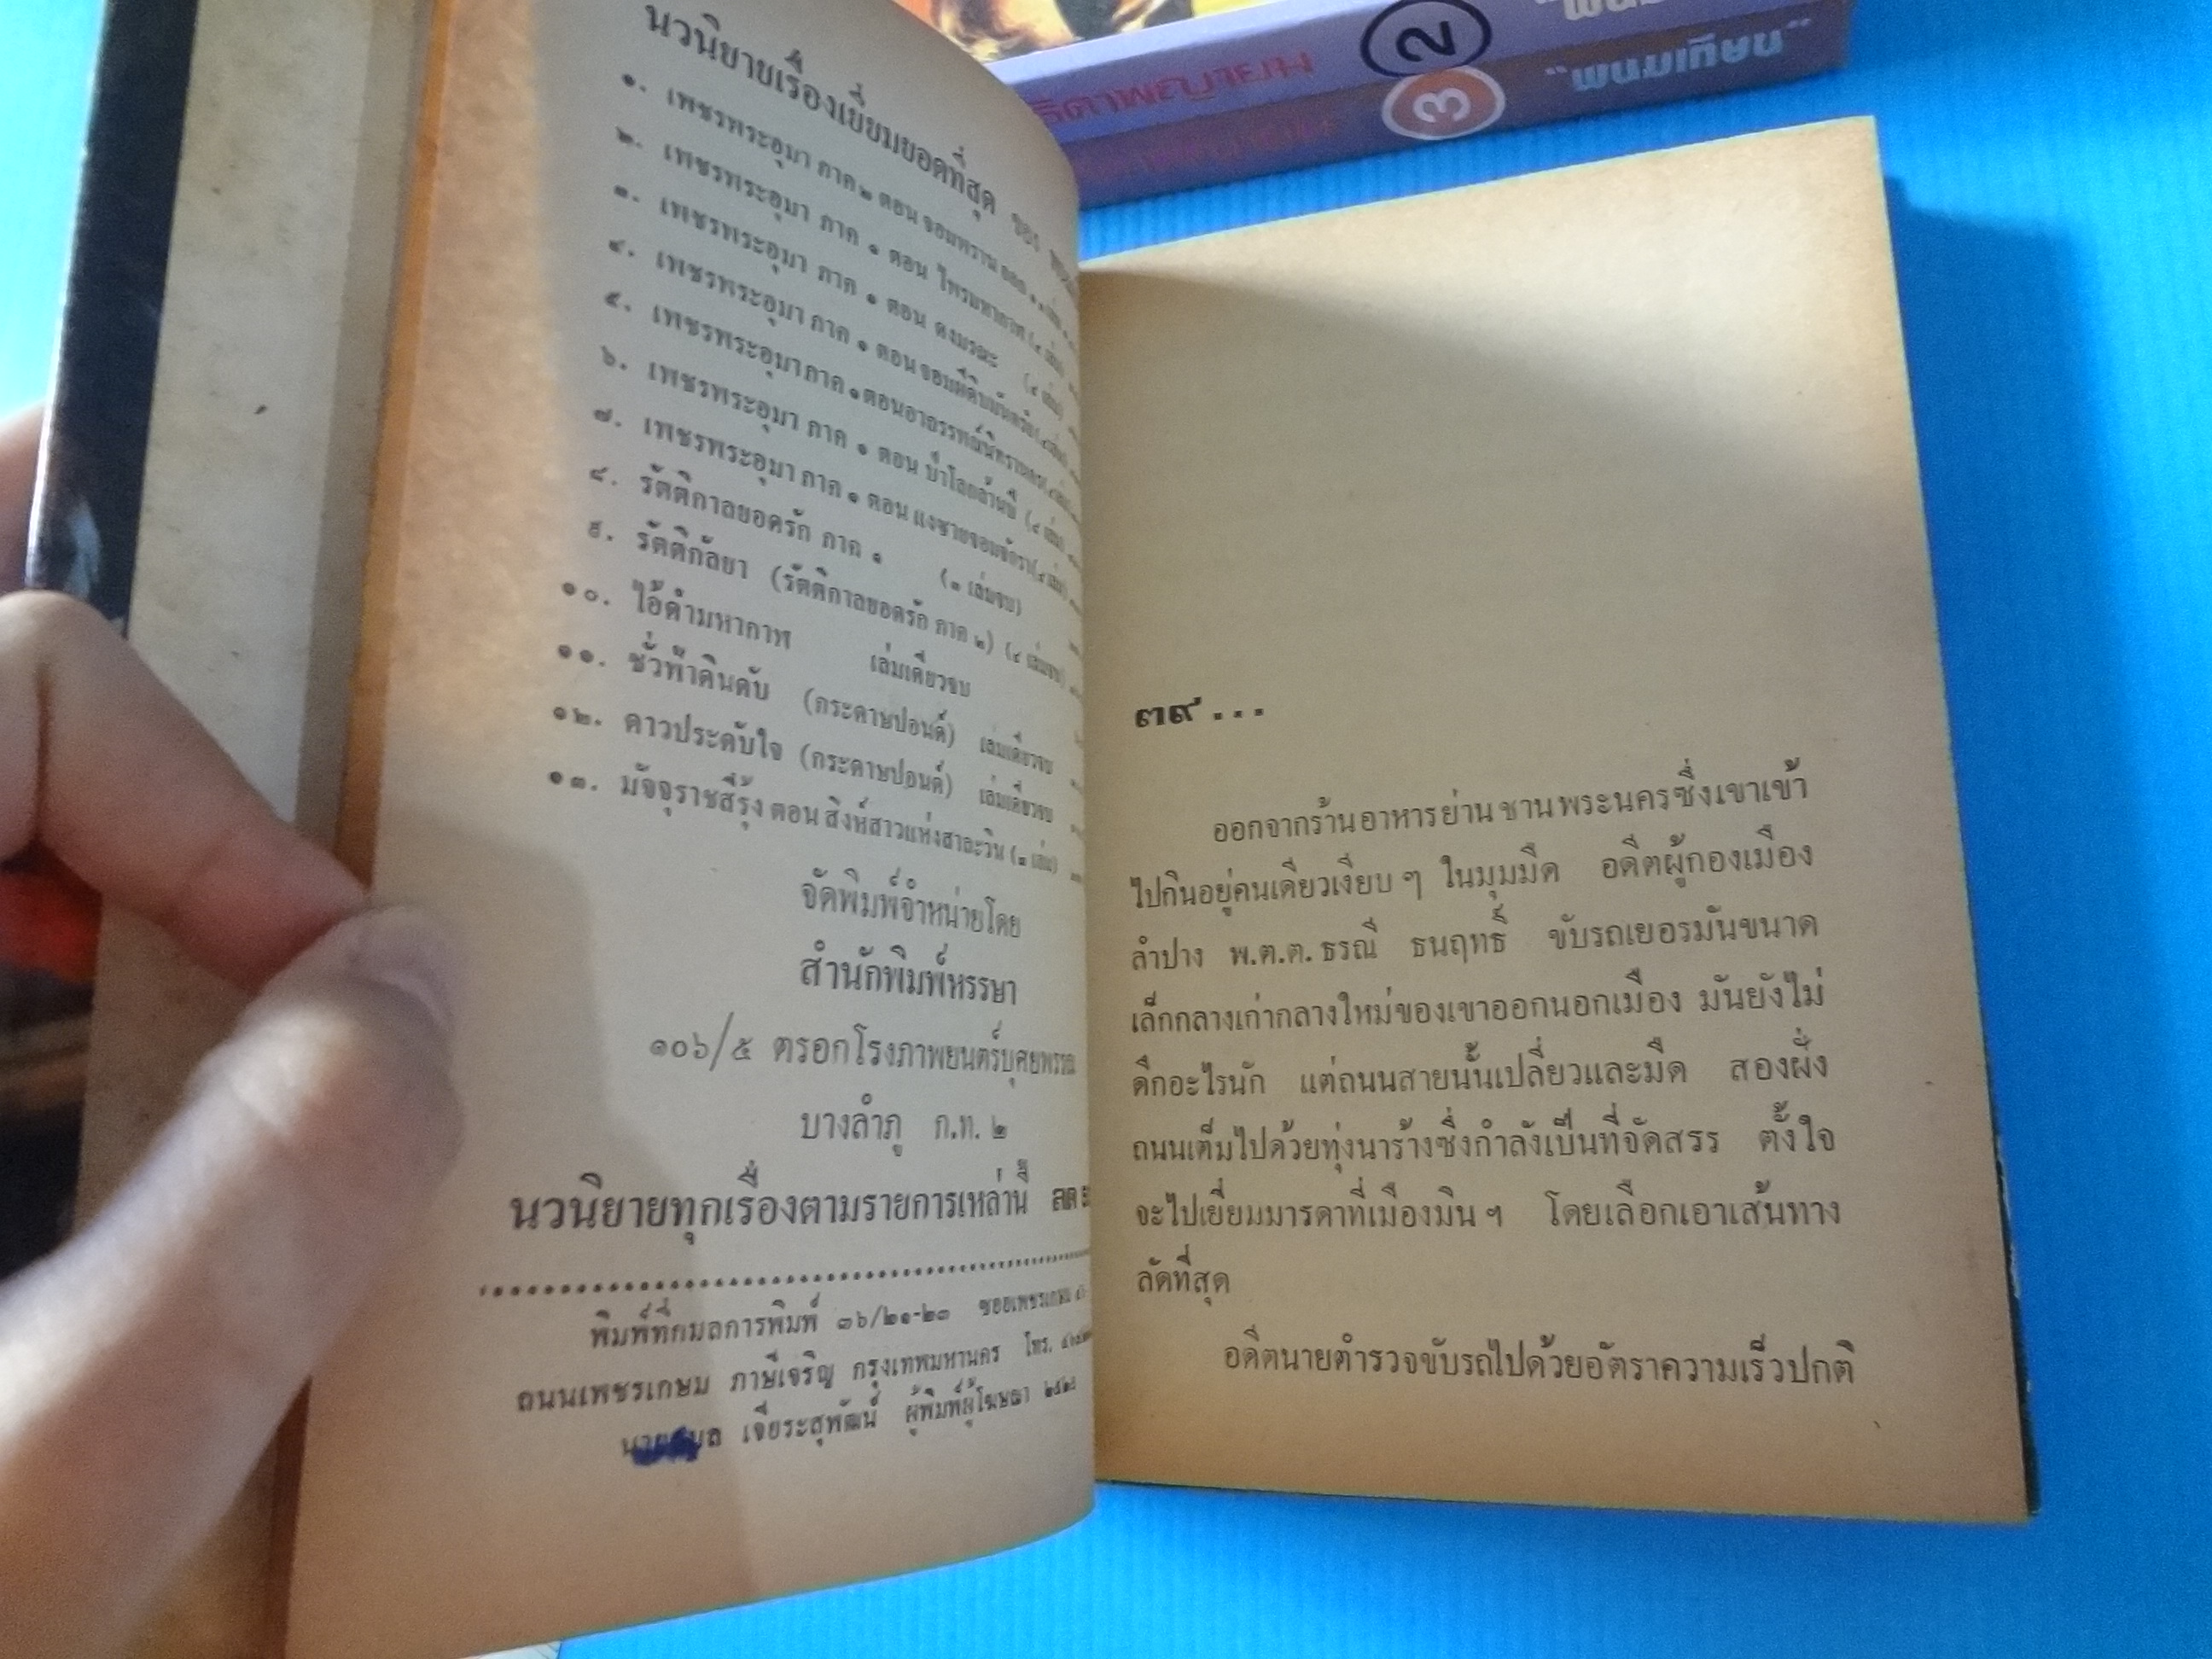 ธิดาพญายม ๒
๓ "พนมเทียน"
นวนิยายเรื่องเยี่ยมยอดที่สุด ของ
๑. เพชรพระอุมา ภาค ๒ ตอน จอมพราน ออก
๒. เพชรพระอุมา ภาค ๑ ตอน ไพรมหากาฬ (๔ เล่ม)
๓. เพชรพระอุมา ภาค ๑ ตอน ดงมรณะ (๔ เล่ม)
๔. เพชรพระอุมา ภาค ๑ ตอน จอมผีดิบมันตรัย (๔ เล่ม)
๕. เพชรพระอุมา ภาค ๑ ตอนอาถรรพณ์นิทรานคร (๔ เล่ม)
๖. เพชรพระอุมา ภาค ๑ ตอน ป่าโลกล้านปี (๔ เล่ม)
๗. เพชรพระอุมา ภาค ๑ ตอน แงซายจอมจักรา (๔ เล่ม)
๘. รัตติกาลยอดรัก ภาค ๑ (๓ เล่มจบ)
๙. รัตติกัลยา (รัตติกาลยอดรัก ภาค ๒) (๔ เล่มจบ)
๑๐. ไอ้ดำมหากาฬ เล่มเดียวจบ
๑๑. ชั่วฟ้าดินดับ (กระดาษปอนด์) เล่มเดียวจบ
๑๒. ดาวประดับใจ (กระดาษปอนด์) เล่มเดียวจบ
๑๓. มัจจุราชสีรุ้ง ตอน สิงห์สาวแห่งสาละวิน (๓ เล่ม)
จัดพิมพ์จำหน่ายโดย
สำนักพิมพ์หรรษา
๑๐๖/๕ ตรอกโรงภาพยนตร์บุศยพรรณ
บางลำภู ก.ท. ๒
นวนิยายทุกเรื่องตามรายการเหล่านี้ ลด
พิมพ์ที่กมลการพิมพ์ ๓๖/๒๑-๒๓ ซอยเพชรเกษม
ถนนเพชรเกษม ภาษีเจริญ กรุงเทพมหานคร โทร.
เจียระสุพัฒน์ ผู้พิมพ์ผู้โฆษณา
๓๙...
ออกจากร้านอาหารย่านชานพระนครซึ่งเขาเข้า
ไปกินอยู่คนเดียวเงียบ ๆ ในมุมมืด อดีตผู้กองเมือง
ลำปาง พ.ต.ต. ธรณี ธนฤทธิ์ ขับรถเยอรมันขนาด
เล็กกลางเก่ากลางใหม่ของเขาออกนอกเมือง มันยังไม่
ดึกอะไรนัก แต่ถนนสายนั้นเปลี่ยวและมืด สองฝั่ง
ถนนเต็มไปด้วยทุ่งนาร้างซึ่งกำลังเป็นที่จัดสรร ตั้งใจ
จะไปเยี่ยมมารดาที่เมืองมิน ฯ โดยเลือกเอาเส้นทาง
ลัดที่สุด
อดีตนายตำรวจขับรถไปด้วยอัตราความเร็วปกติ